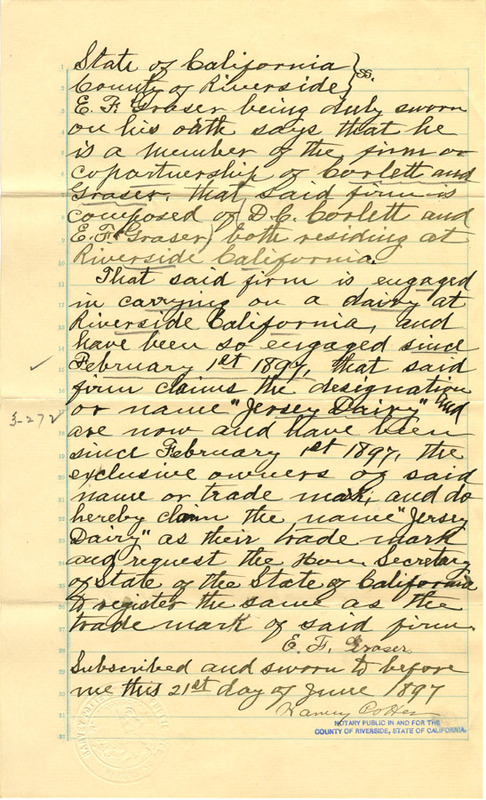 State of California } ss.
County of Riverside }
E. F. Graser being duly sworn
on his oath says that he
is a member of the firm or
copartnership of Corlett and
Graser, that said firm is
composed of D. C. Corlett and
E. F. Graser, both residing at
Riverside California.
That said firm is engaged
in carrying on a dairy at
Riverside California, and
have been so engaged since
February 1st 1897, that said
firm claims the designation
or name "Jersey Dairy" and
3-272
are now and have been
since February 1st 1897, the
exclusive owners of said
name or trade mark, and do
hereby claim the name "Jersey
Dairy" as their trade mark
and request the Hon. Secretary
of State of the State of California
to register the same as the
trade mark of said firm.
E. F. Graser
Subscribed and sworn to before
me this 21st day of June 1897
NOTARY PUBLIC IN AND FOR THE
COUNTY OF RIVERSIDE, STATE OF CALIFORNIA.